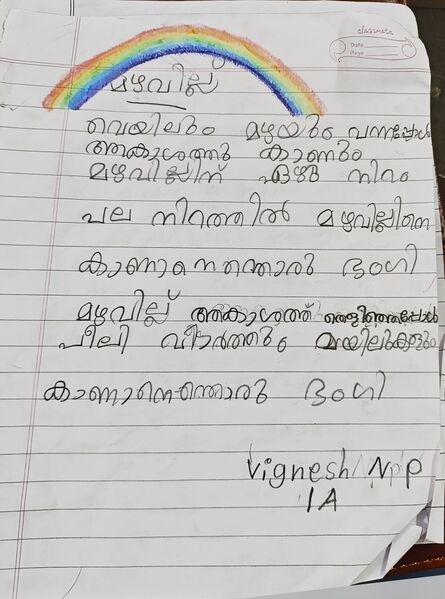 classmate
Date
Page
മഴവില്ല്
വെയിലും മഴയും വന്നപ്പോൾ
ആകാശത്തു കാണും
മഴവില്ലിന് ഏഴു നിറം
പല നിറത്തിൽ മഴവില്ലിനെ
കാണാനെന്തൊരു ഭംഗി
മഴവില്ല് ആകാശത്ത് തെളിഞ്ഞപ്പോൾ
പീലി വിടർത്തും മയിലുകളും
കാണാനെന്തൊരു ഭംഗി
Vignesh N P
1A